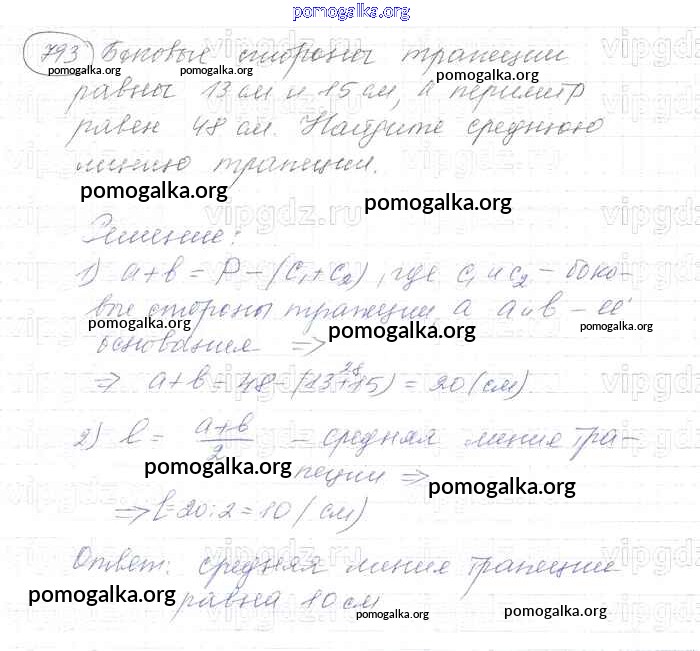 pomogalka.org
793 Боковые стороны трапеции
pomogalka.org pomogalka.org pomogalka.org
равны 13 см и 15 см, а периметр
равен 48 см. Найдите среднюю
линию трапеции.
pomogalka.org pomogalka.org
vipgdz.ru
Решение:
1) a+b = P - (c₁+c₂), где c₁ и c₂ - боко-
вые стороны трапеции, а a и b - её
pomogalka.org pomogalka.org pomogalka.org
основания ⇒
⇒ a+b = 48 - (13+15) = 20 (см)
28
2) l = a+b/2 - средняя линия тра-
pomogalka.org пеции ⇒ pomogalka.org
⇒ l = 20:2 = 10 (см)
Ответ: средняя линия трапеции
pomogalka.org равна 10 см pomogalka.org pomogalka.org